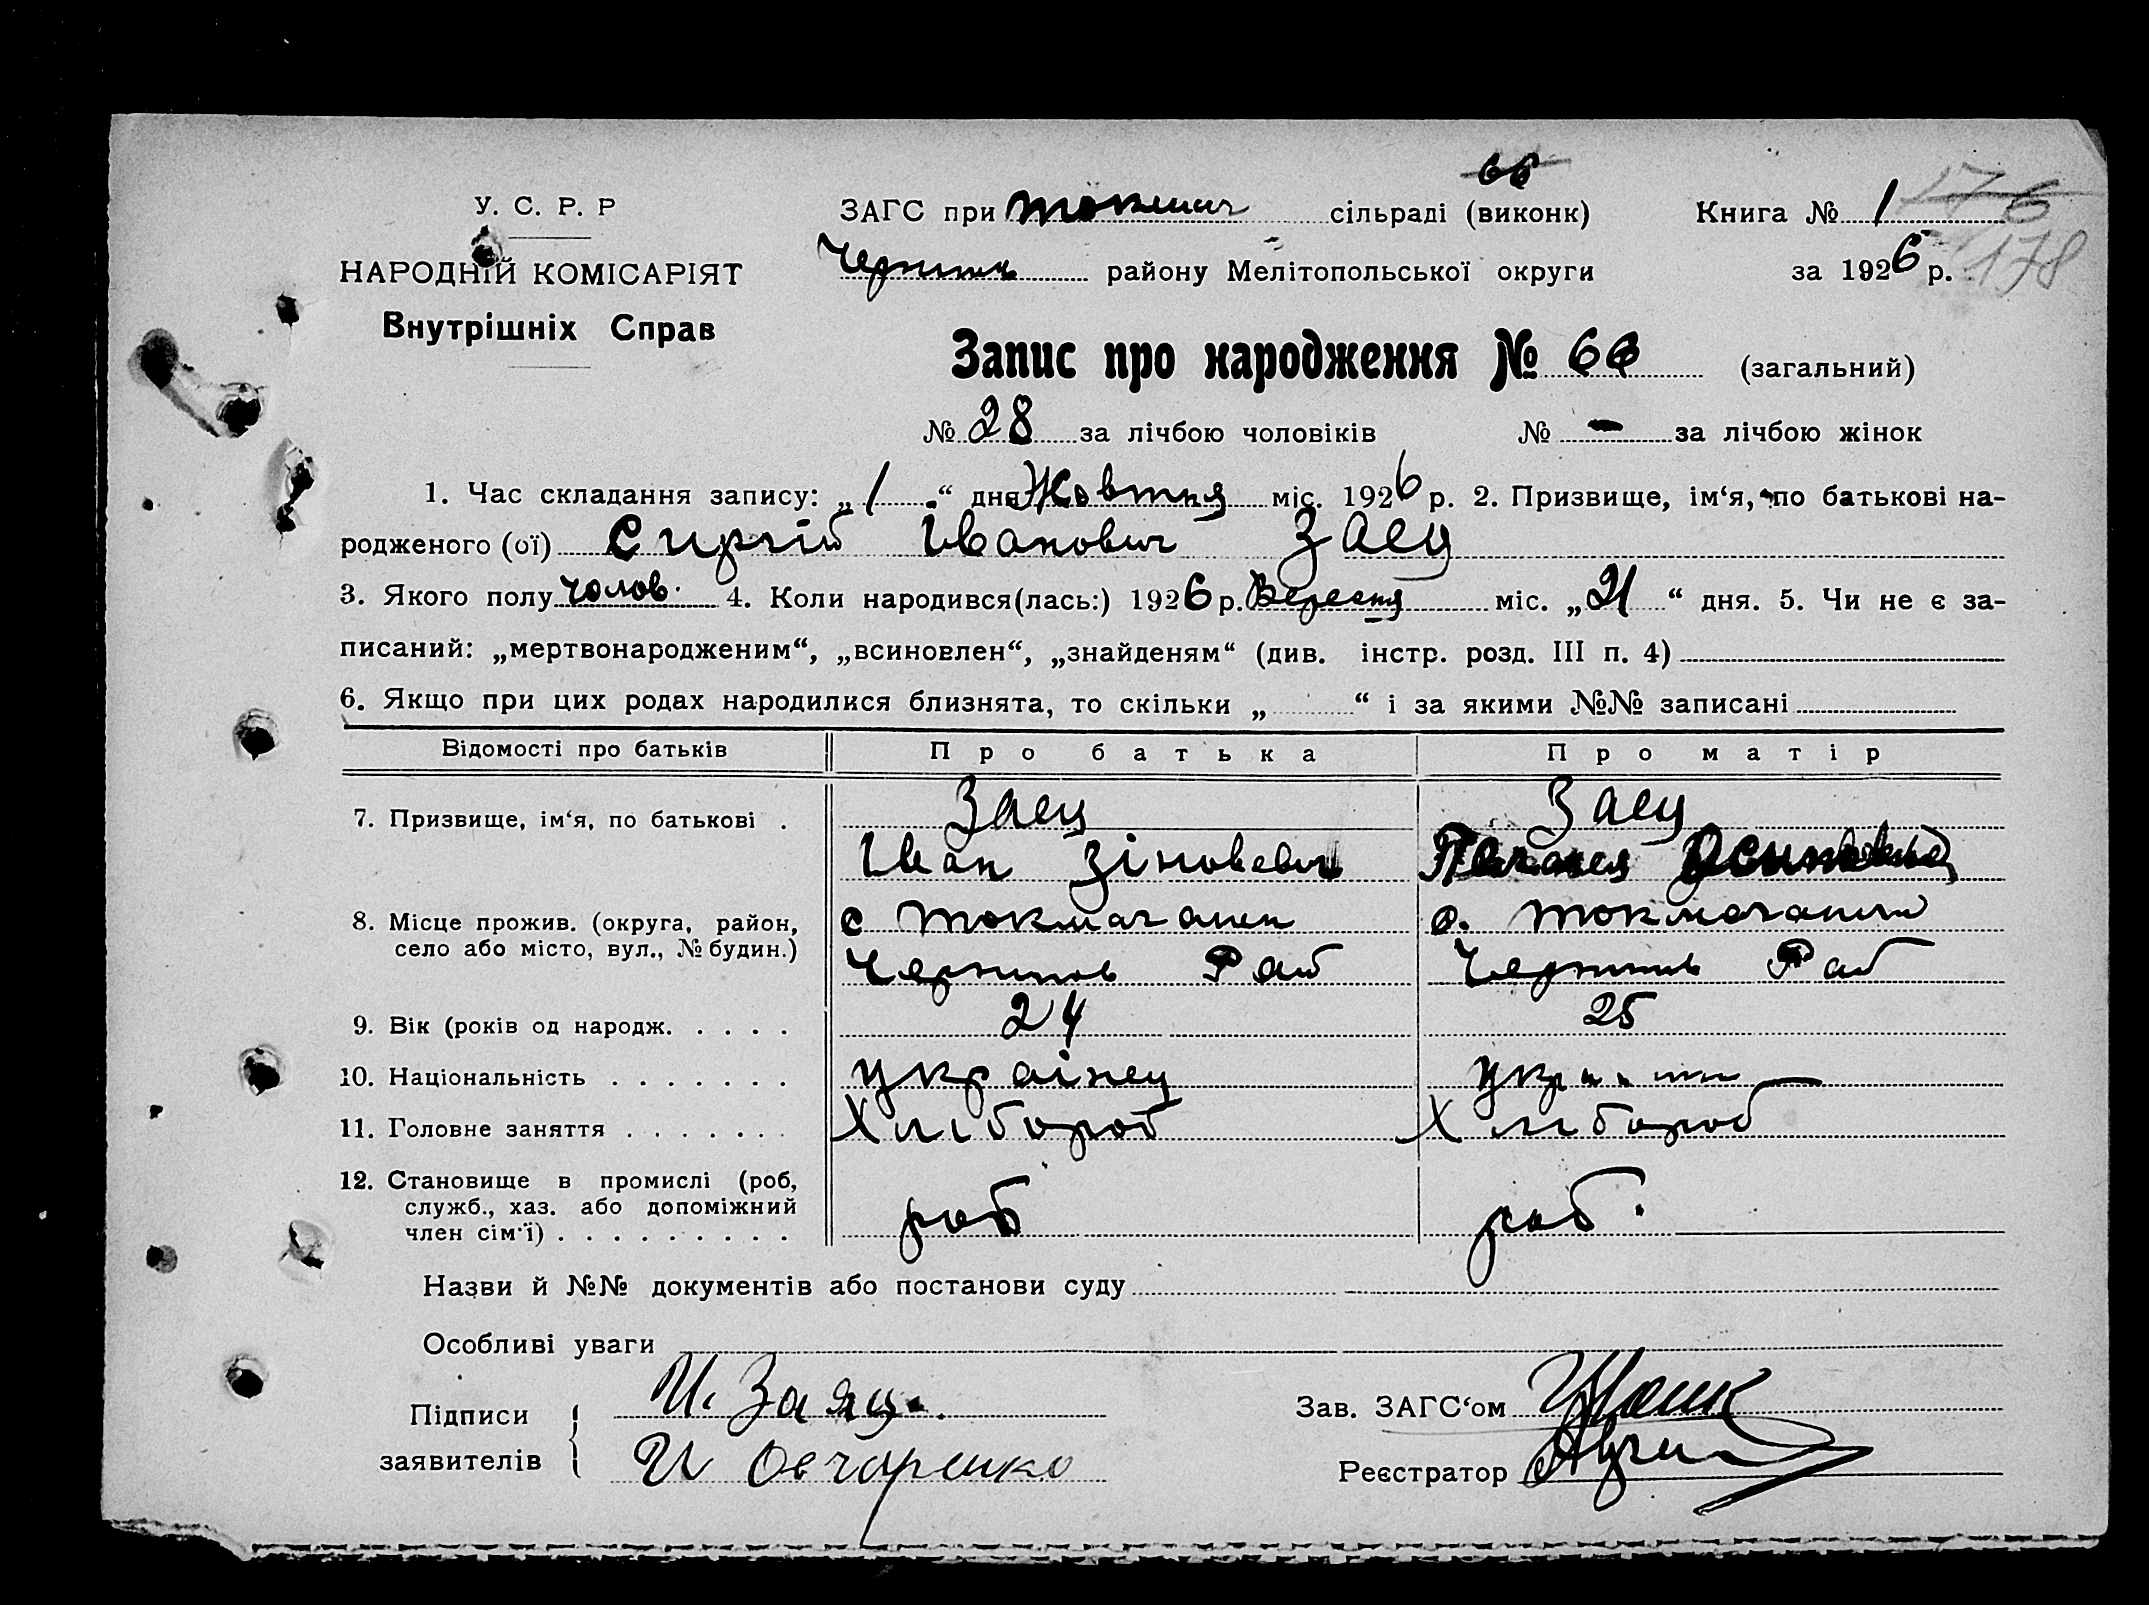 66
У. С. Р. Р
ЗАГС при Токмач сільраді (виконк)
Книга № 1 176
НАРОДНІЙ КОМІСАРІЯТ
району Мелітопольської округи
за 1926 р. 178
Внутрішніх Справ
Запис про народження № 66 (загальний)
№ 28 за лічбою чоловіків № - за лічбою жінок
1. Час складання запису: „1“ дня Жовтня міс. 1926 р. 2. Призвище, ім‘я, по батькові на-
родженого (ої) Сиргій Іванович Заец
3. Якого полу чолов. 4. Коли народився(лась:) 1926 р. Вересня міс. „21“ дня. 5. Чи не є за-
писаний: „мертвонародженим“, „всиновлен“, „знайденям“ (див. інстр. розд. III п. 4)
6. Якщо при цих родах народилися близнята, то скільки „ “ і за якими №№ записані
Відомості про батьків Про батька Про матір
7. Призвище, ім‘я, по батькові . Заец Заец
Іван Зіновевич
8. Місце прожив. (округа, район, с
село або місто, вул., № будин.) Рай Рай
9. Вік (років од народж. . . . . 24 25
10. Національність . . . . . . . українец
11. Головне заняття . . . . . . . Хлібороб Хлібороб
12. Становище в промислі (роб,
служб., хаз. або допоміжний роб роб.
член сім‘ї) . . . . . . . . .
Назви й №№ документів або постанови суду
Особливі уваги
Підписи И. Заяц. Зав. ЗАГС‘ом
заявителів И Овчаренко Реєстратор